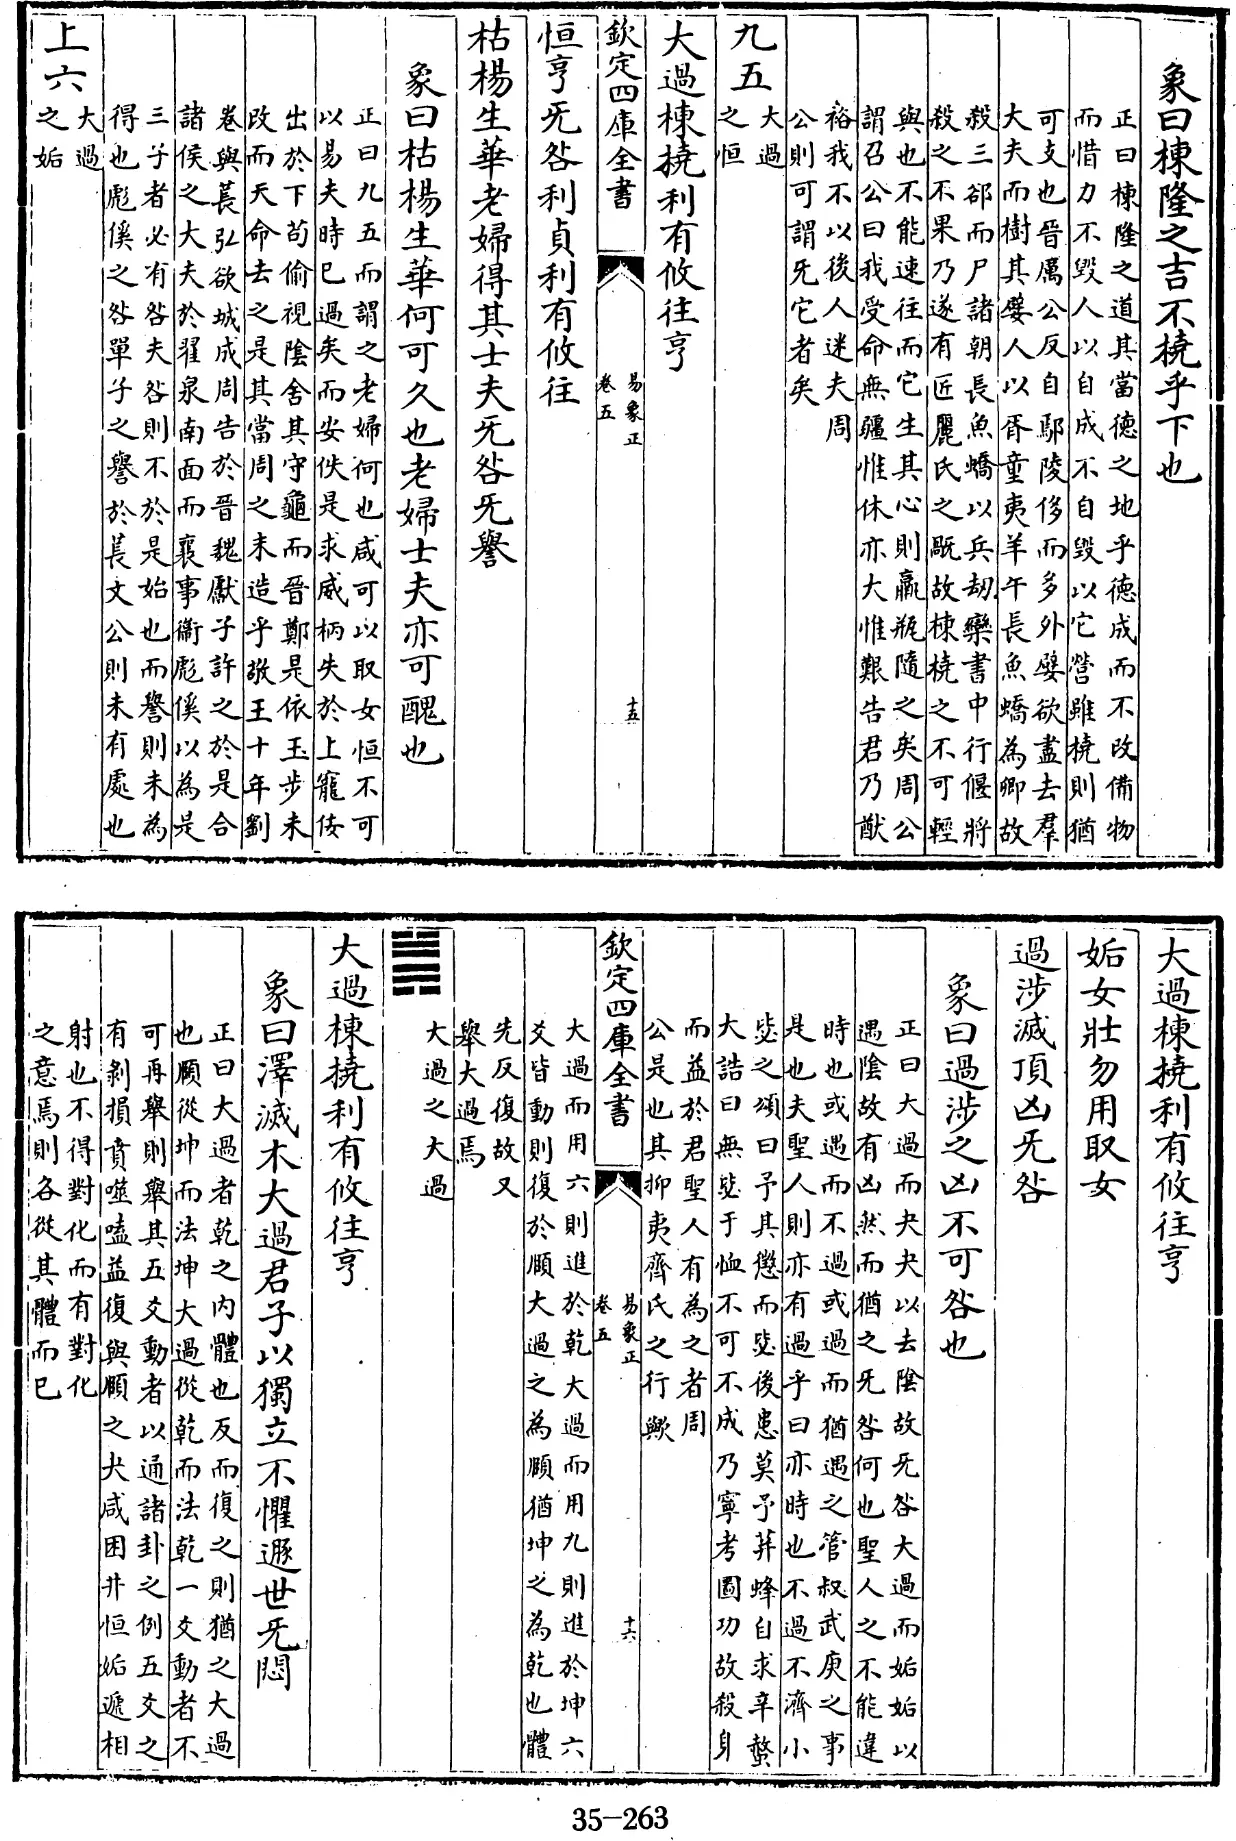 象曰棟隆之吉不橈乎下也
正曰棟隆之道其當德之地乎德成而不改備物
而惜力不毀人以自成不自毀以它營雖橈則猶
可支也晉厲公反自鄢陵侈而多外嬖欲盡去羣
大夫而樹其嬖人以胥童夷羊午長魚蟜為卿故
殺三郤而尸諸朝長魚蟜以兵劫欒書中行偃將
殺之不果乃遂有匠麗氏之毆故棟橈之不可輕
與也不能速往而它生其心則羸瓶隨之矣周公
謂召公曰我受命無疆惟休亦大惟艱告君乃猷
裕我不以後人迷夫周
公則可謂旡它者矣
九五
大過
之恒
大過棟橈利有攸往亨
欽定四庫全書
易象正
卷五
十五
恒亨旡咎利貞利有攸往
枯楊生華老婦得其士夫旡咎旡譽
象曰枯楊生華何可久也老婦士夫亦可醜也
正曰九五而謂之老婦何也咸可以取女恒不可
以易夫時已過矣而安佚是求威柄失於上寵佞
出於下苟偷視陰舍其守龜而晉鄭是依玉步未
改而天命去之是其當周之末造乎敬王十年劉
卷與萇弘欲城成周告於晉魏獻子許之於是合
諸侯之大夫於翟泉南面而襄事衞彪傒以為是
三子者必有咎夫咎則不於是始也而譽則未為
得也彪傒之咎單子之譽於萇文公則未有處也
上六
大過
之姤
大過棟橈利有攸往亨
姤女壯勿用取女
過涉滅頂凶旡咎
象曰過涉之凶不可咎也
正曰大過而夬夬以去陰故旡咎大過而姤姤以
遇陰故有凶然而猶之旡咎何也聖人之不能違
時也或遇而不過或過而猶遇之管叔武庚之事
是也夫聖人則亦有過乎曰亦時也不過不濟小
毖之頌曰予其懲而毖後患莫予荓蜂自求辛螫
大誥曰無毖于恤不可不成乃寧考圖功故殺身
而益於君聖人有為之者周
公是也其抑夷齊氏之行歟
欽定四庫全書
易象正
卷五
十六
大過而用六則進於乾大過而用九則進於坤六
爻皆動則復於頤大過之為頤猶坤之為乾也體
先反復故又
舉大過焉
大過之大過
大過棟橈利有攸往亨
象曰澤滅木大過君子以獨立不懼遯世旡悶
正曰大過者乾之內體也反而復之則猶之大過
也頤從坤而法坤大過從乾而法乾一爻動者不
可再舉則舉其五爻動者以通諸卦之例五爻之
有剝損賁噬嗑益復與頤之夬咸困井恒姤遞相
射也不得對化而有對化
之意焉則各從其體而已
35-263